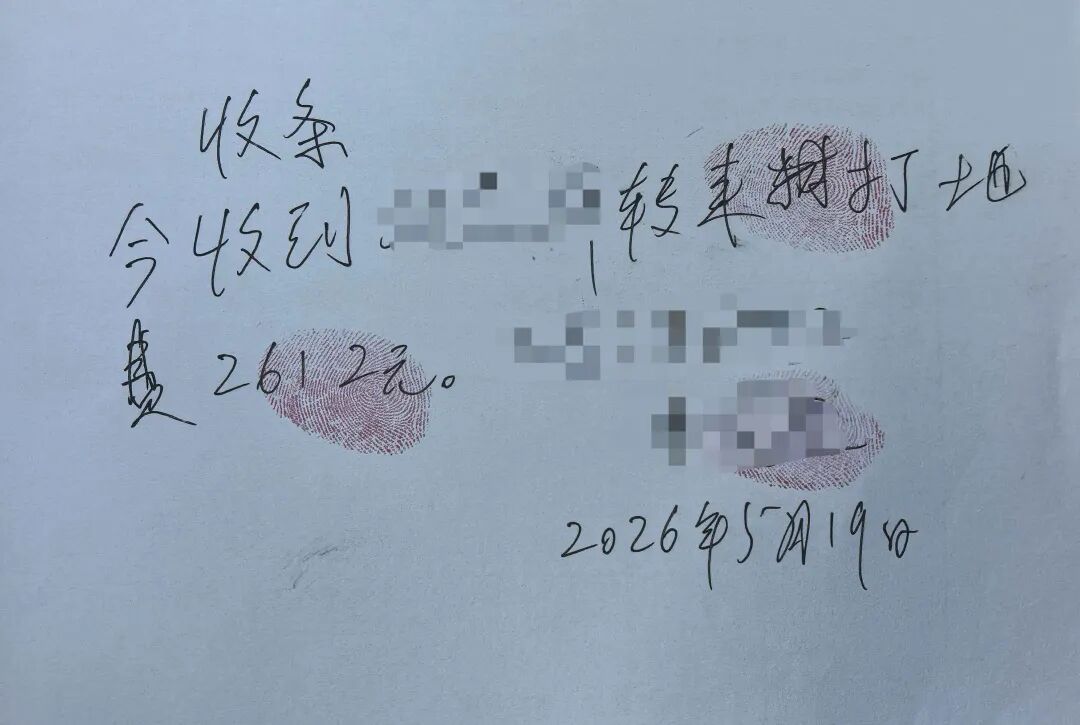 收条
今收到 转来 打地
费2612元。
2026年5月19日